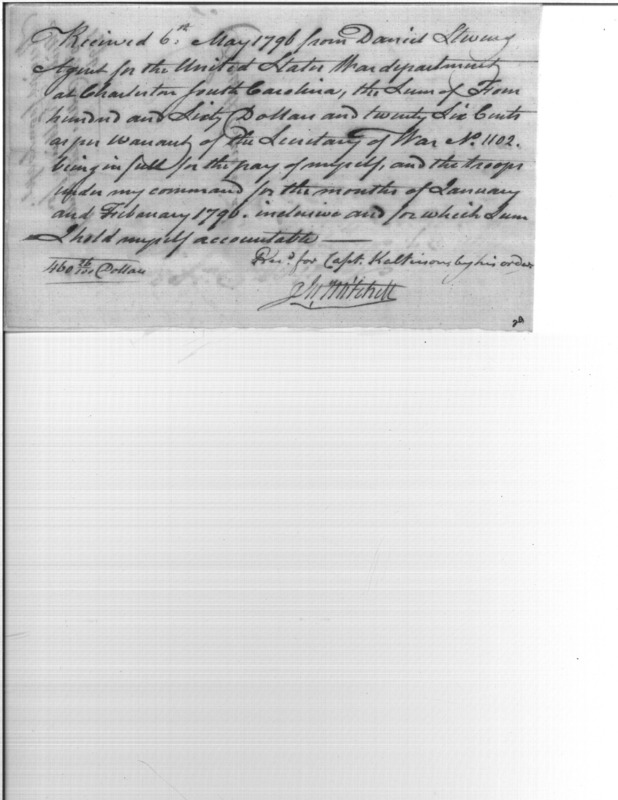 Received 6th. May 1796 from Daniel Stevens
Agent for the United States War department
at Charleston South Carolina, the Sum of Four
hundred and Sixty Dollars and twenty Six Cents
as per Warrant of the Secretary of War No. 1102.
being in full for the pay of myself, and the troops
under my command for the months of January
and February 1796. inclusive and for which Sum
I hold myself accountable —
460 26/100 Dollars
for Capt. by his order
Mitchell